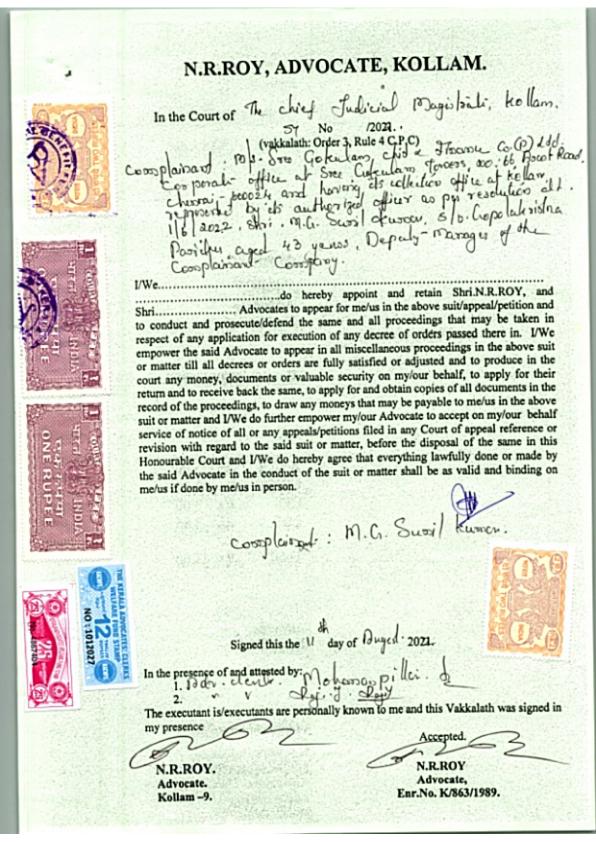 N.R.ROY, ADVOCATE, KOLLAM.
In the Court of The chief Judicial Magistrate, Kollam.
ST No /2021.
(vakkalath: Order 3, Rule 4 C.P.C)
Complainant: M/s. Sree Gokulam chit & Finance Co(P) Ltd.
Corporate office at Sree Gokulam Towers, no: 66, Arcot Road
Chennai-600024 and having its collection office at Kollam,
represented by its authorized officer as per resolution dtd.
1/8/2022, Shri. M.G. Sunil Kumar, S/o. Gopalakrishna
aged 43 years, Deputy-Manager of the
Complainant Company.
I/We
do hereby appoint and retain Shri.N.R.ROY, and
Shri. Advocates to appear for me/us in the above suit/appeal/petition and
to conduct and prosecute/defend the same and all proceedings that may be taken in
respect of any application for execution of any decree of orders passed there in. I/We
empower the said Advocate to appear in all miscellaneous proceedings in the above suit
or matter till all decrees or orders are fully satisfied or adjusted and to produce in the
court any money, documents or valuable security on my/our behalf, to apply for their
return and to receive back the same, to apply for and obtain copies of all documents in the
record of the proceedings, to draw any moneys that may be payable to me/us in the above
suit or matter and I/We do further empower my/our Advocate to accept on my/our behalf
service of notice of all or any appeals/petitions filed in any Court of appeal reference or
revision with regard to the said suit or matter, before the disposal of the same in this
Honourable Court and I/We do hereby agree that everything lawfully done or made by
the said Advocate in the conduct of the suit or matter shall be as valid and binding on
me/us if done by me/us in person.
Complainant : M.G. Sunil Kumar.
Signed this the 11th day of August. 2021.
In the presence of and attested by:
1. Adv. clerk Mohanan pillai
2. " "
The executant is/executants are personally known to me and this Vakkalath was signed in
my presence
Accepted.
N.R.ROY.
Advocate.
Kollam –9.
N.R.ROY
Advocate,
Enr.No. K/863/1989.
INDIA
ONE RUPEE
INDIA
ONE RUPEE
THE KERALA ADVOCATES CLERKS
WELFARE FUND STAMP
12
NO : 1012027
25